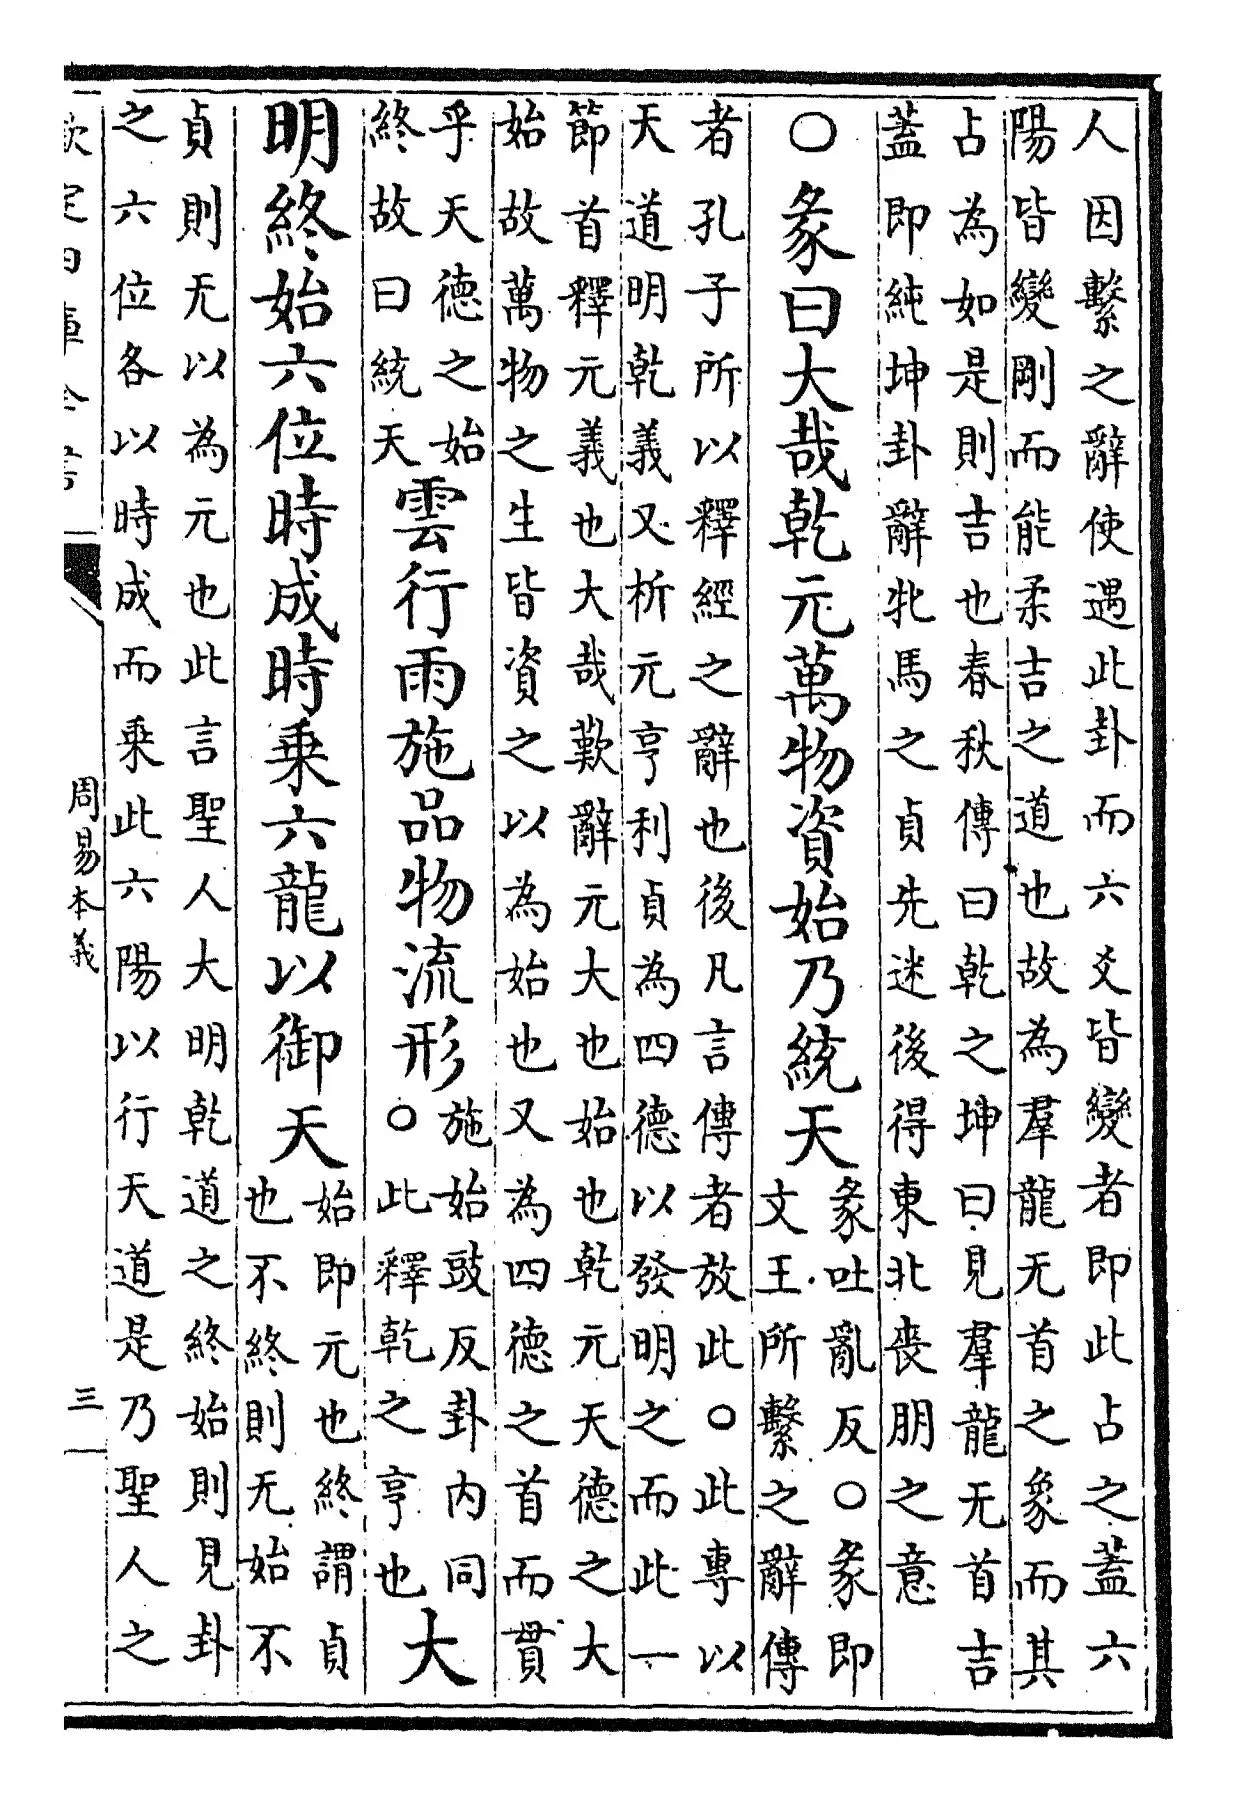 人因繫之辭使遇此卦而六爻皆變者即此占之蓋六
陽皆變剛而能柔吉之道也故為羣龍无首之象而其
占為如是則吉也春秋傳曰乾之坤曰見羣龍无首吉
蓋即純坤卦辭牝馬之貞先迷後得東北喪朋之意
○彖曰大哉乾元萬物資始乃統天
彖吐亂反○彖即
文王所繫之辭傳
者孔子所以釋經之辭也後凡言傳者放此○此專以
天道明乾義又析元亨利貞為四德以發明之而此一
節首釋元義也大哉歎辭元大也始也乾元天德之大
始故萬物之生皆資之以為始也又為四德之首而貫
乎天德之始
終故曰統天
雲行雨施品物流形
施始豉反卦内同
○此釋乾之亨也
大
明終始六位時成時乗六龍以御天
始即元也終謂貞
也不終則无始不
貞則无以為元也此言聖人大明乾道之終始則見卦
之六位各以時成而乗此六陽以行天道是乃聖人之
欽定四庫全書
周易本義
三